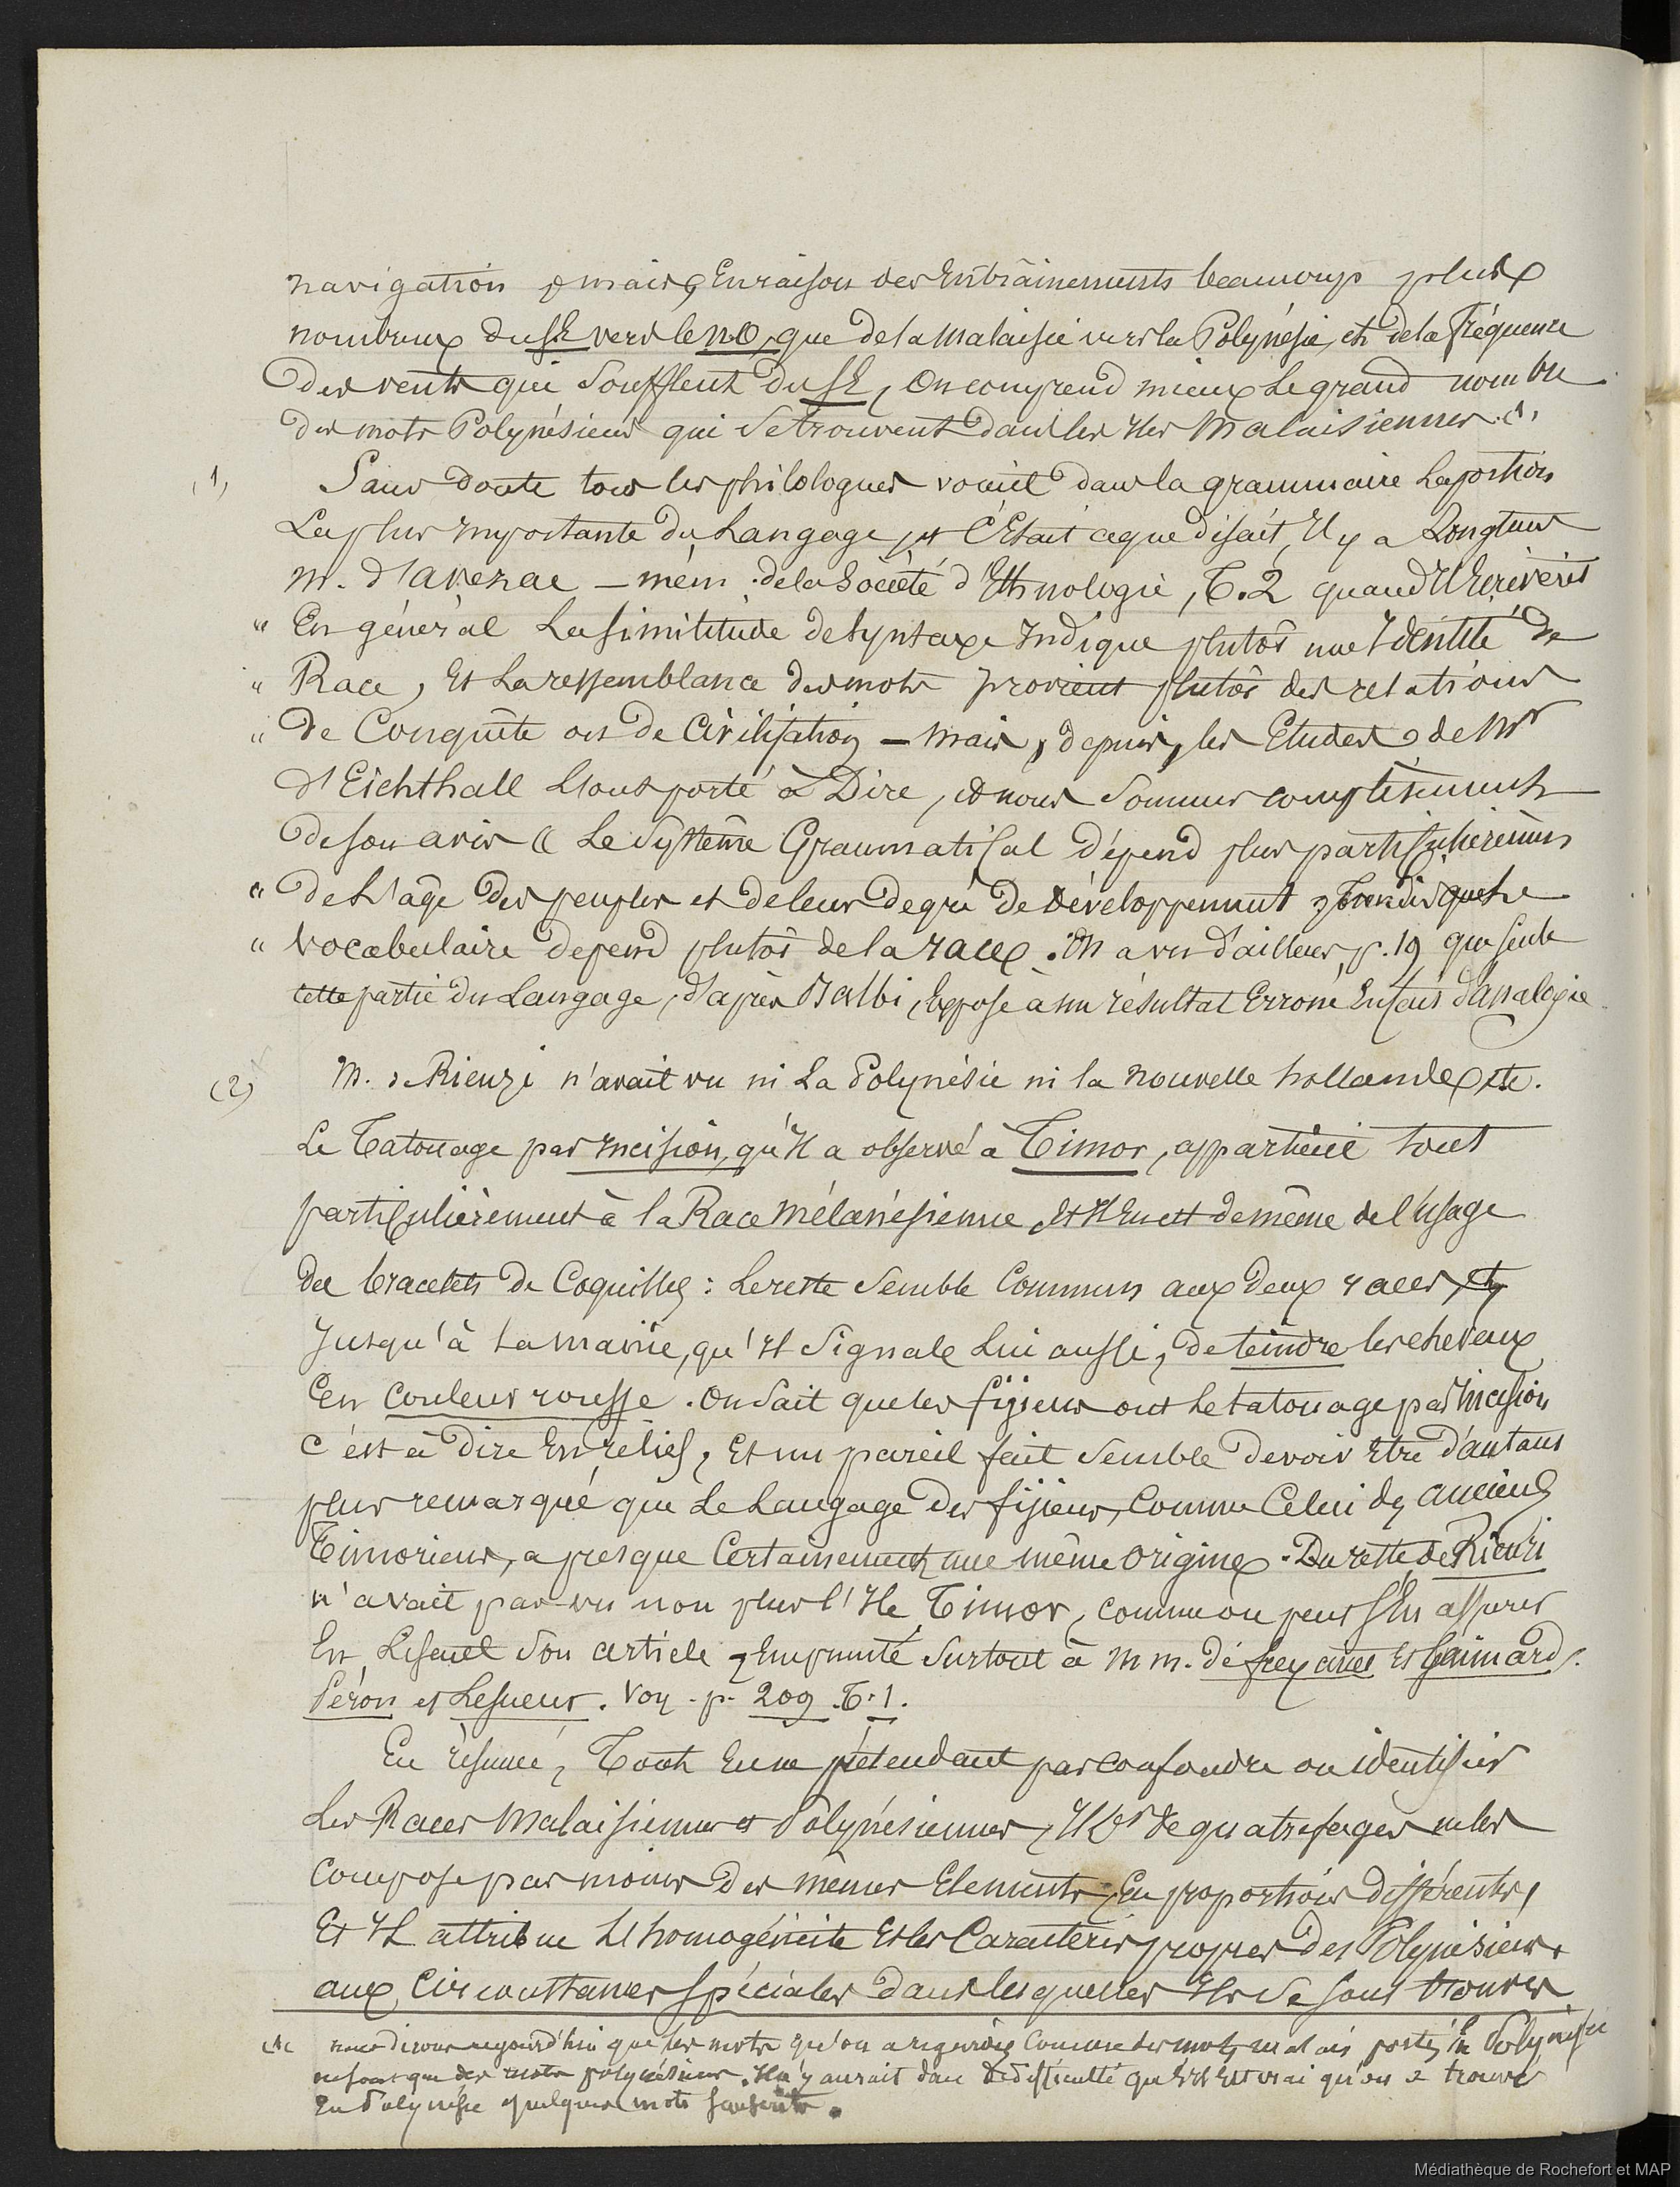 navigation ; mais, En raison des Entrâinements beaucoup plus
nombreux du SE vers le NO, que de la Malaisie vers la Polynésie, et de la Fréquence
Des vents qui Soufflent du SE, On comprend mieux Le grand nombre
Des mots Polynésiens qui se trouvent dans les Iles Malaisiennes. (1)
(1) Sans doute tous les philologues voient dans la grammaire La portion
La plus Importante du Langage, et C'Etait ce que disait, Il y a Longtems
M. D'avezac — mém. de la Société d'Ethnologie, T. 2 quand Il Ecrivait
" En général La similitude de syntaxe Indique plutôt une Identité de
" Race, Et La ressemblance des mots provient plutôt des relations
" De Conquête ou De Civilisation — mais, depuis, les Etudes de Mr
d'Eichthall L'ont porté à Dire, et nous Sommes complètement
De son avis « Le Système Grammatical dépend plus particulièrement
" De L'âge Des peuples et de leur degré De Développement, Tandis que Le
" Vocabulaire dépend plutôt de la race. On a vu d'ailleurs, p. 19 que seule
cette partie du Langage, d'après Balbi, Expose à un résultat Erroné En fait d'analogie
(2) M. de Rienzi n'avait vu ni La Polynésie ni la nouvelle hollande, etc.
Le Tatouage par Incision, qu'Il a observé à Timor, appartient tout
particulièrement à la Race Mélanésienne, Et Il En est de même de l'Usage
des bracelets De Coquilles : Le reste Semble Commun aux Deux races, et,
Jusqu'à La manie, qu'Il Signale Lui aussi, De teindre les cheveux
En Couleur rousse. On Sait que les fijiens ont Le tatouage par Incision
c'est à Dire En relief, Et un pareil fait Semble Devoir Etre D'autant
plus remarqué que Le Langage Des fijiens, Comme Celui des anciens
Timoriens, a presque Certainement une même Origine. Du reste De Rienzi
n'avait pas vu non plus l'Ile Timor, comme on peut s'En assurer
En Lisant Son article, Emprunté Surtout à M M. de freycinet Et Gaimard,
Péron et Lesueur. Voy. p. 209. T. 1.
En résumé, Tout En ne prétendant pas confondre ou identifier
Les Races Malaisiennes et Polynésiennes, Mr de quatrefages ne les
Compose pas moins Des mêmes Eléments, En proportions différentes,
Et Il attribue L'homogénéité Et les Caractères propres des Polynésiens
aux Circonstances Spéciales Dans lesquelles Ils se sont trouvés
(1) nous dirons aujourd'hui que les mots qu'on a regardés Comme des mots malais portés En Polynésie
ne sont que des mots polynésiens. Il n'y aurait donc de difficulté qu's'Il Est vrai qu'on a trouvé
En Polynésie quelques mots Sanscrits.
Médiathèque de Rochefort et MAP